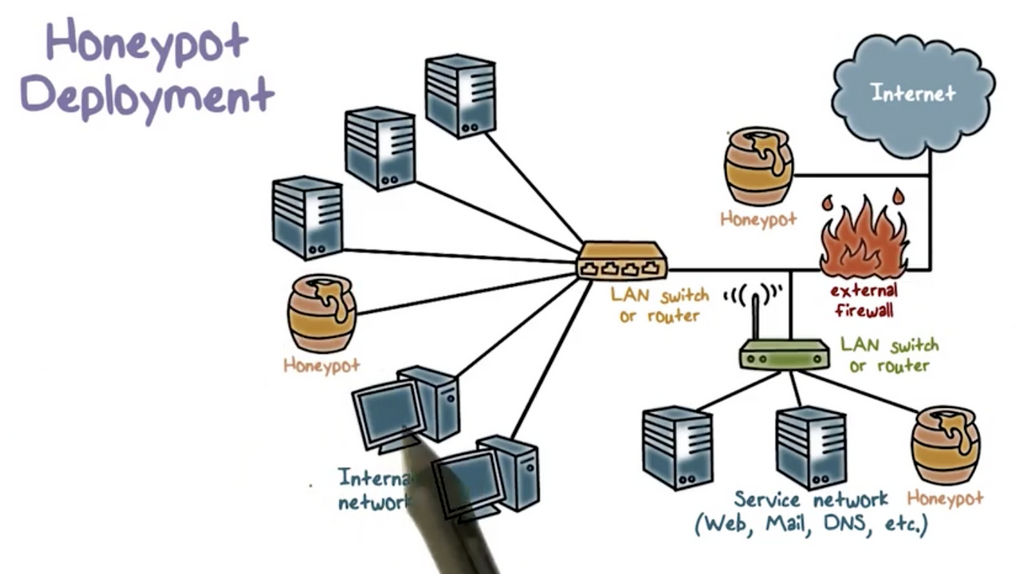 Honeypot
Deployment
Internet
Honeypot
external
firewall
LAN switch
or router
LAN switch
or router
Honeypot
Internal
network
Service network
(Web, Mail, DNS, etc.)
Honeypot